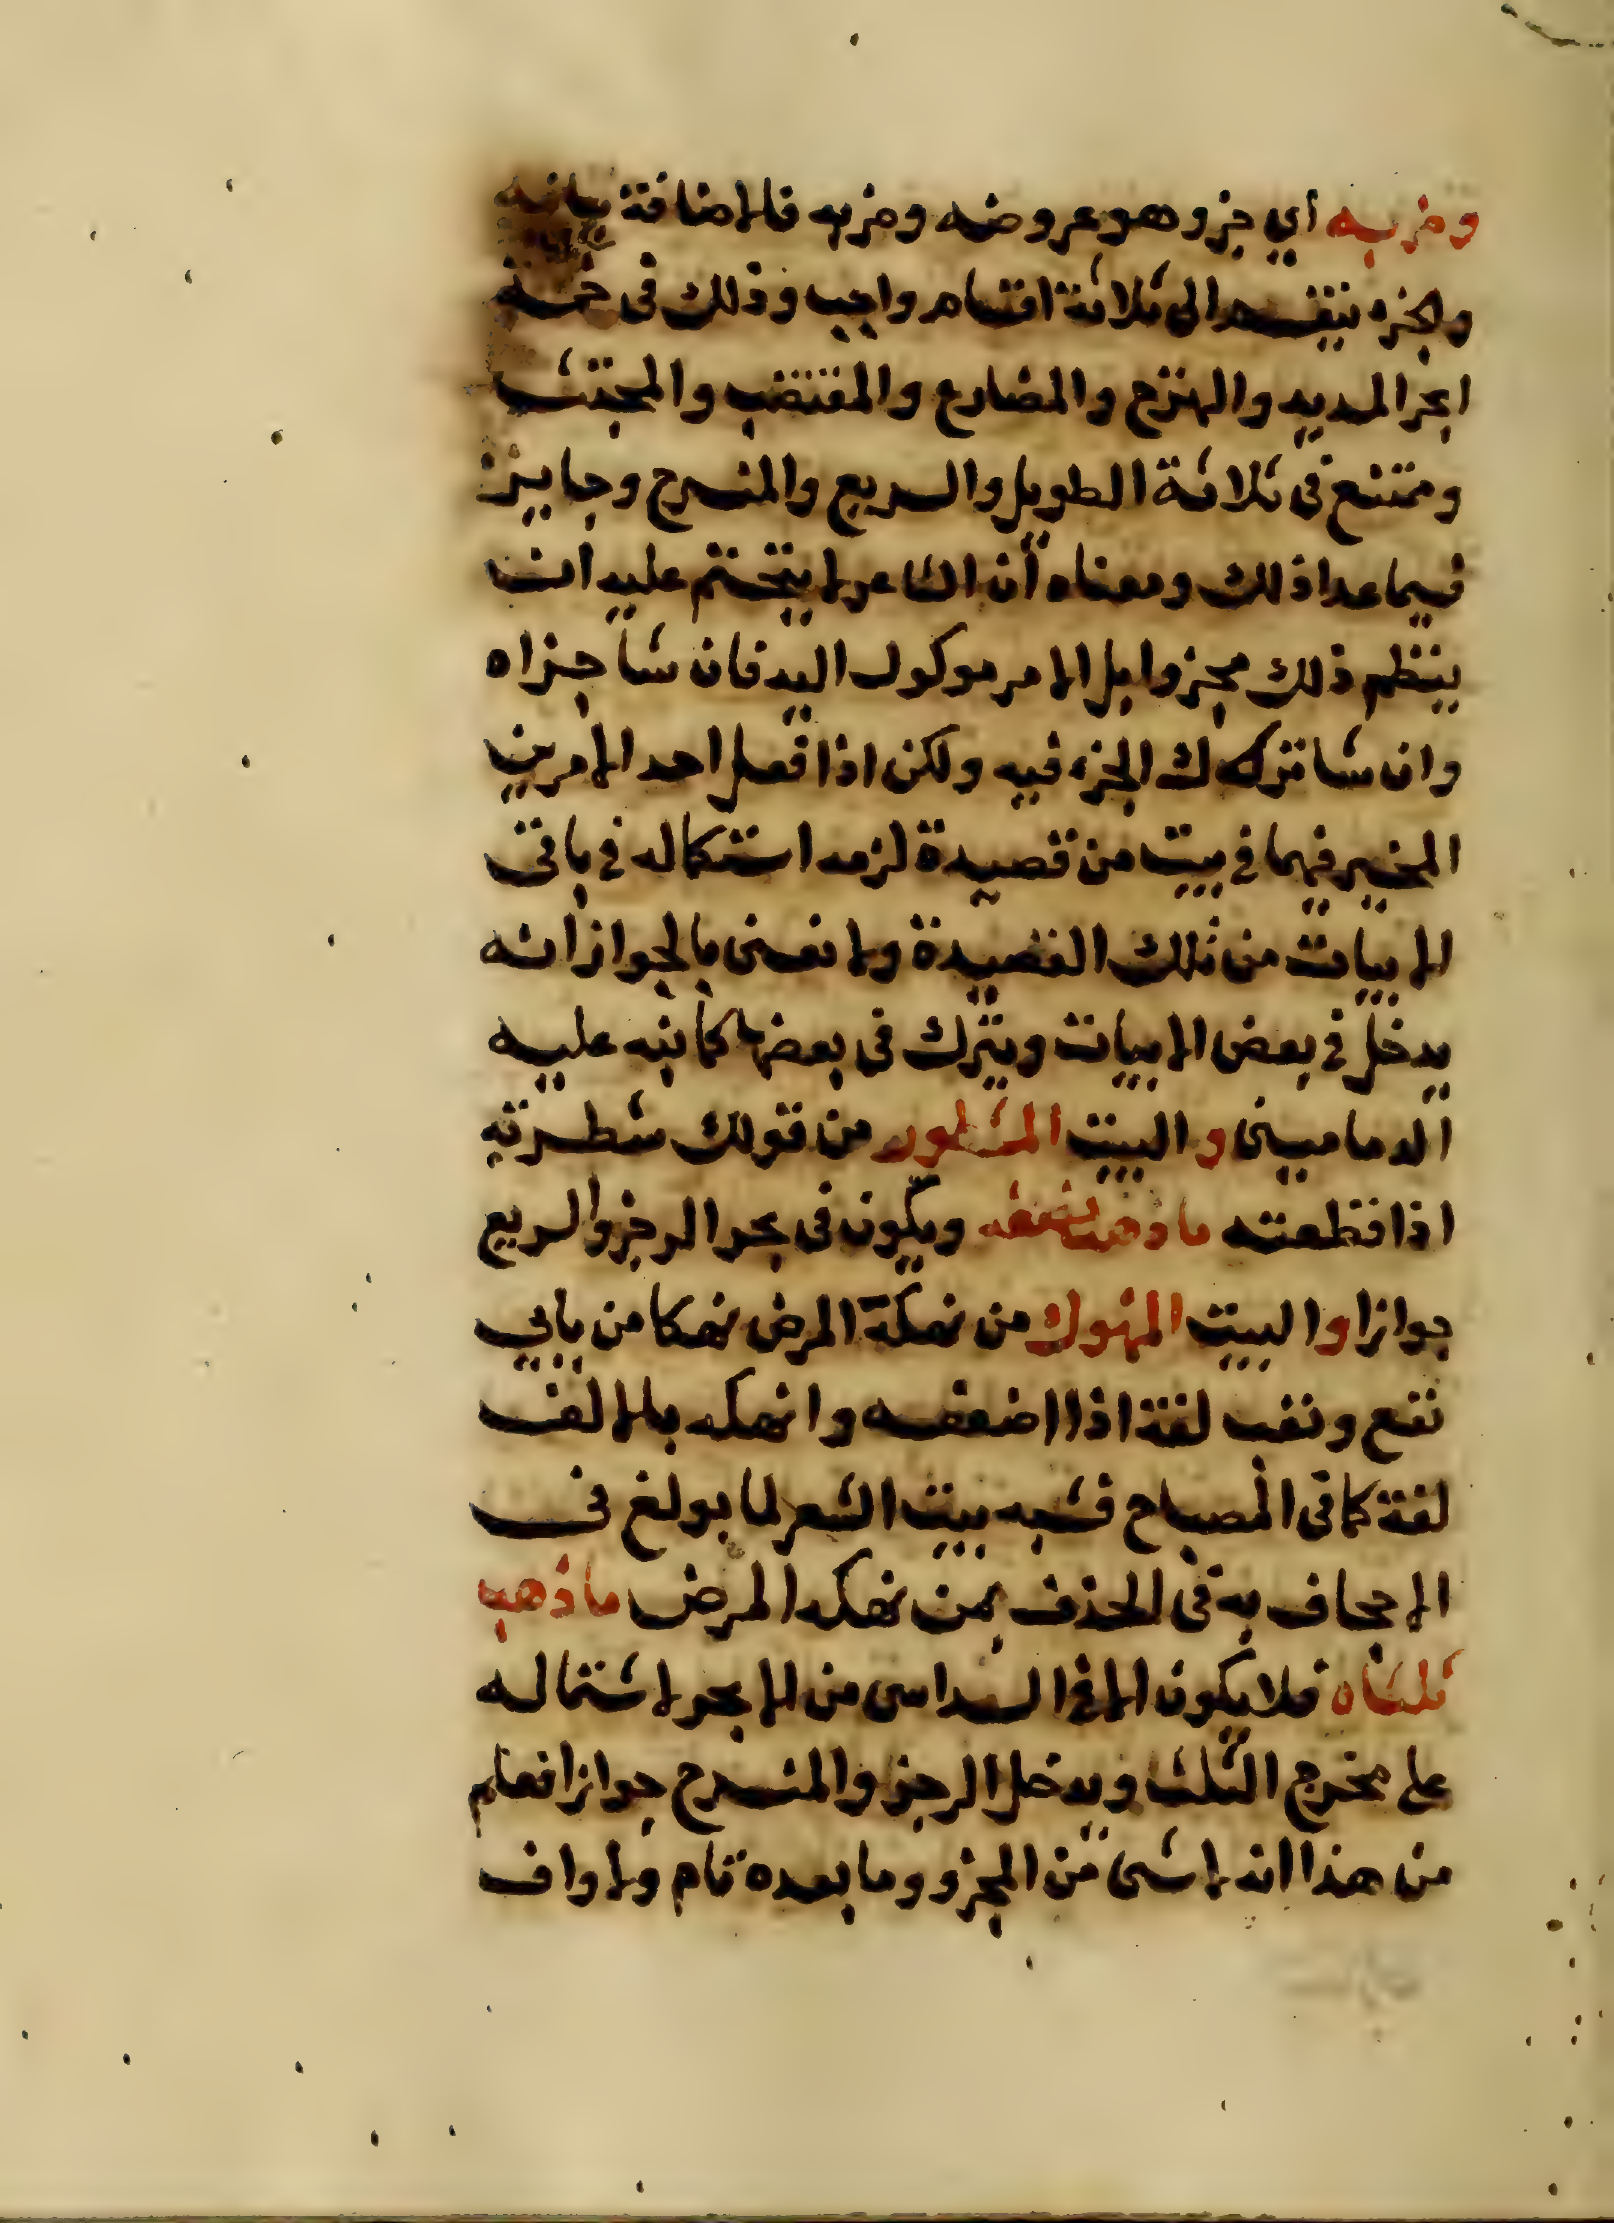 وضربه أي جزو هو عروضه وضربه فالاضافة بيانيه
والجزء ينقسم الى ثلاثة اقسام واجب وذلك في خمسة
ابحر المديد والهزج والمضارع والمقتضب والمجتث
وممتنع في ثلاثة الطويل والسريع والمنسرح وجايز
فيما عدا ذلك ومعناه أن الشاعر لا يتحتم عليه ان
ينظم ذلك مجزوا بل الامر موكول اليه فان شا جزاه
وان شا ترك الجزء فيه ولكن اذا فعل احد الامرين
المخير فيهما في بيت من قصيدة لزمه استكماله في باقي
الابيات من تلك القصيدة ولا نعني بالجواز انه
يدخل في بعض الابيات ويترك في بعضها كما نبه عليه
الدماميني و البيت المشطور من قولك شطرته
اذا قطعته ما ذهب نصفه ويكون في بحر الرجز والسريع
جوازا و البيت المنهوك من نهكة المرض نهكا من بابي
نفع وتعب لغة اذا اضعفه وانهكه بالالف
لغة كما في المصباح فشبه بيت الشعر لما بولغ في
الاجحاف به في الحذف بمن نهكه المرض ما ذهب
ثلثاه فلا يكون الا في السداسي من الابحر لاشتماله
على مخرج الثلث ويدخل الرجز والمنسرح جوازا فعلم
من هذا انه لا شى من المجزو وما بعده تام ولا واف